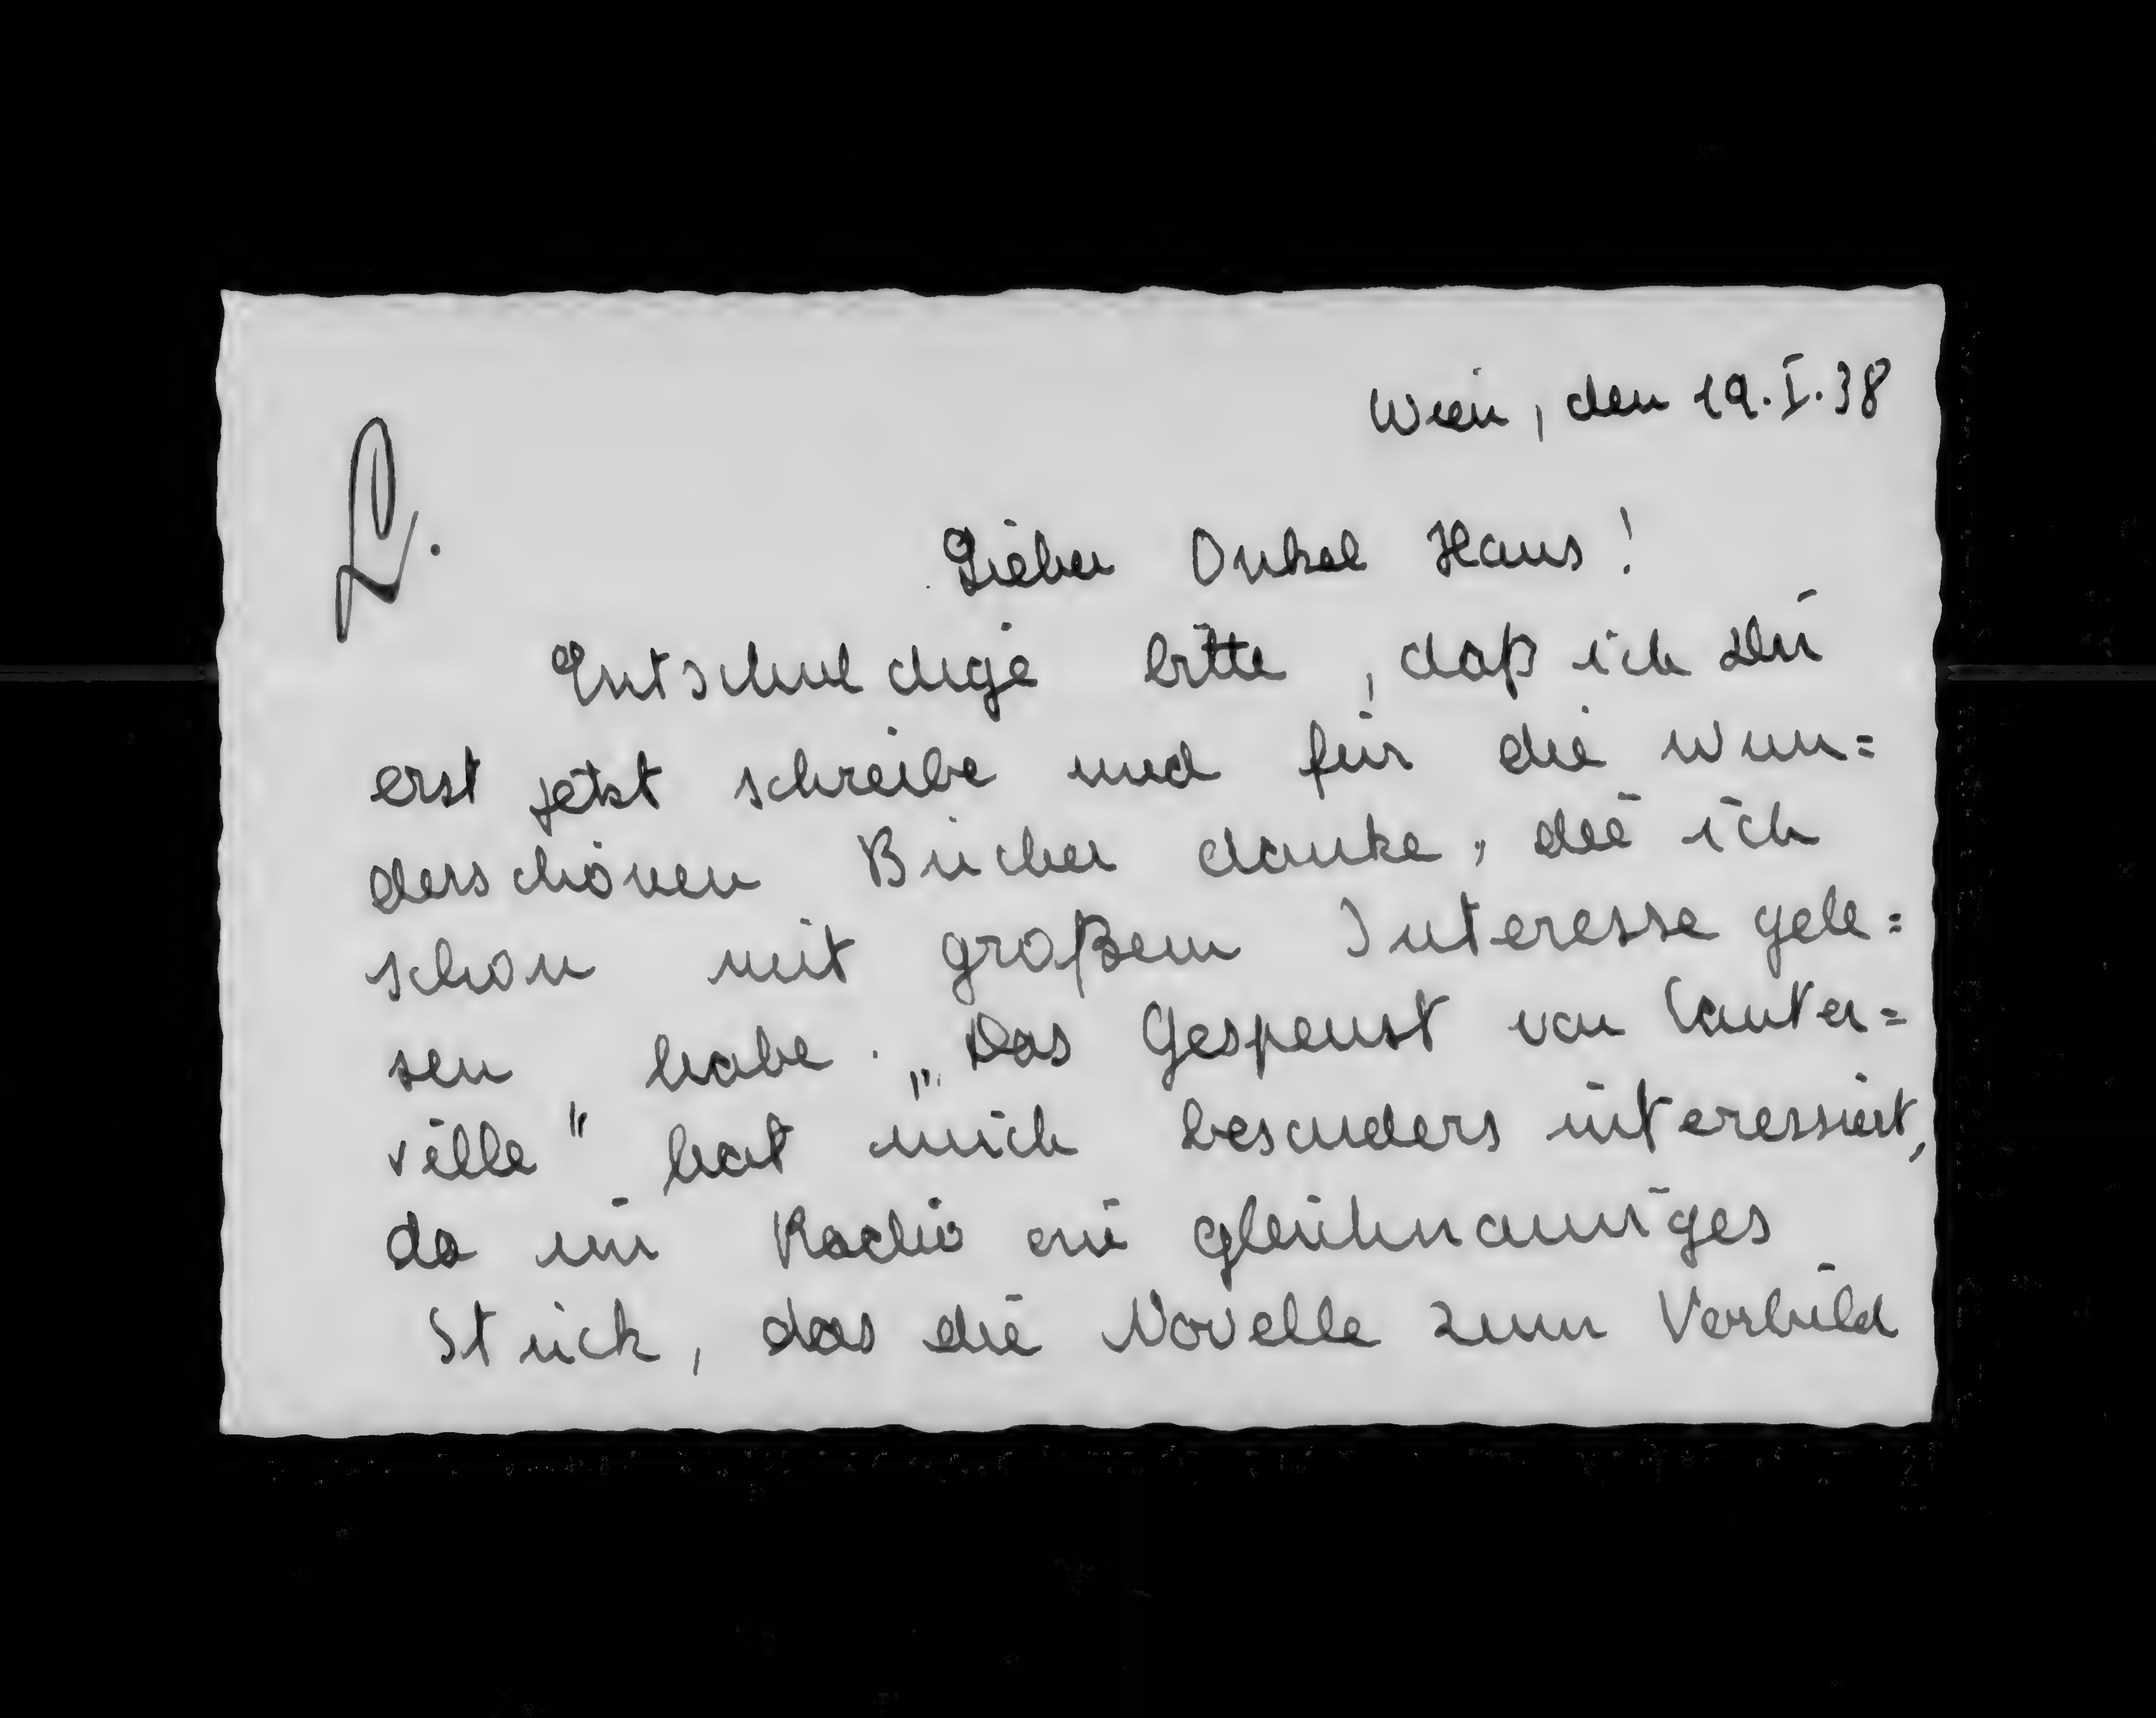 Wien, den 19.I.38
L.
Lieber Onkel Hans!
Entschuldige bitte, daß ich Dir
erst jetzt schreibe und für die wun=
derschönen Bücher danke, die ich
schon mit großem Interesse gele=
sen habe. „Das Gespenst von Canter=
ville" hat mich besonders interessiert,
da im Radio ein gleichnamiges
Stück, das die Novelle zum Vorbild